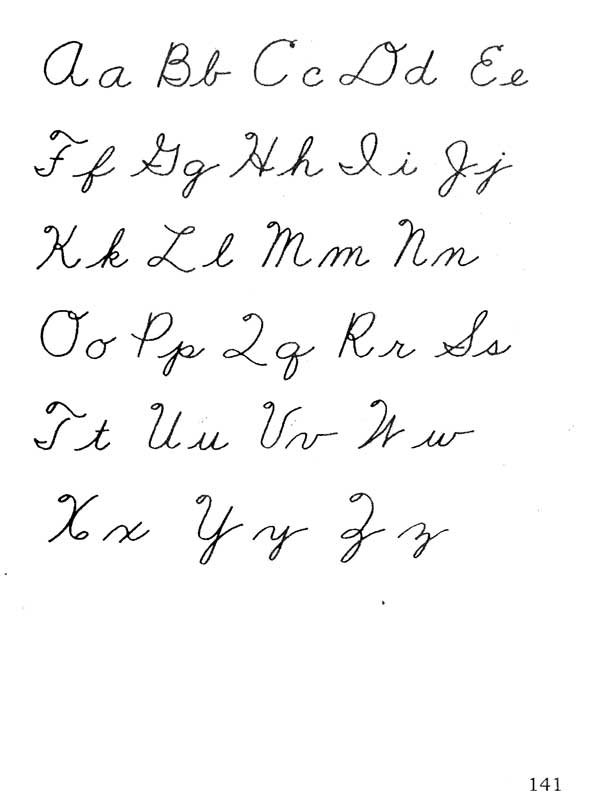 Aa Bb Cc Dd Ee
Ff Gg Hh Ii Jj
Kk Ll Mm Nn
Oo Pp Qq Rr Ss
Tt Uu Vv Ww
Xx Yy Zz
141